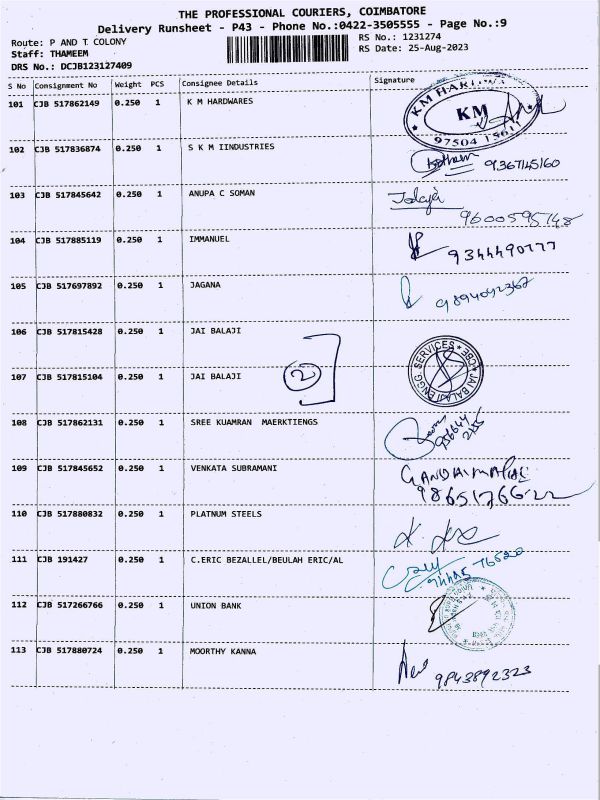 THE PROFESSIONAL COURIERS, COIMBATORE
Delivery Runsheet - P43 - Phone No.:0422-3505555 - Page No.:9
Route: P AND T COLONY
RS No.: 1231274
Staff: THAMEEM
RS Date: 25-Aug-2023
DRS No.: DCJB123127409
S No Consignment No Weight PCS Consignee Details Signature
101 CJB 517862149 0.250 1 K M HARDWARES
KM
97504
102 CJB 517836874 0.250 1 S K M IINDUSTRIES
9367145160
103 CJB 517845642 0.250 1 ANUPA C SOMAN
9600595148
104 CJB 517885119 0.250 1 IMMANUEL
9344490777
105 CJB 517697892 0.250 1 JAGANA
9894092367
106 CJB 517815428 0.250 1 JAI BALAJI
107 CJB 517815104 0.250 1 JAI BALAJI
2
JAI BALAJI ENGG SERVICES * CBE *
108 CJB 517862131 0.250 1 SREE KUAMRAN MAERKTIENGS
109 CJB 517845652 0.250 1 VENKATA SUBRAMANI
9865176622
110 CJB 517880832 0.250 1 PLATNUM STEELS
111 CJB 191427 0.250 1 C.ERIC BEZALLEL/BEULAH ERIC/AL
112 CJB 517266766 0.250 1 UNION BANK
113 CJB 517880724 0.250 1 MOORTHY KANNA
9843892323